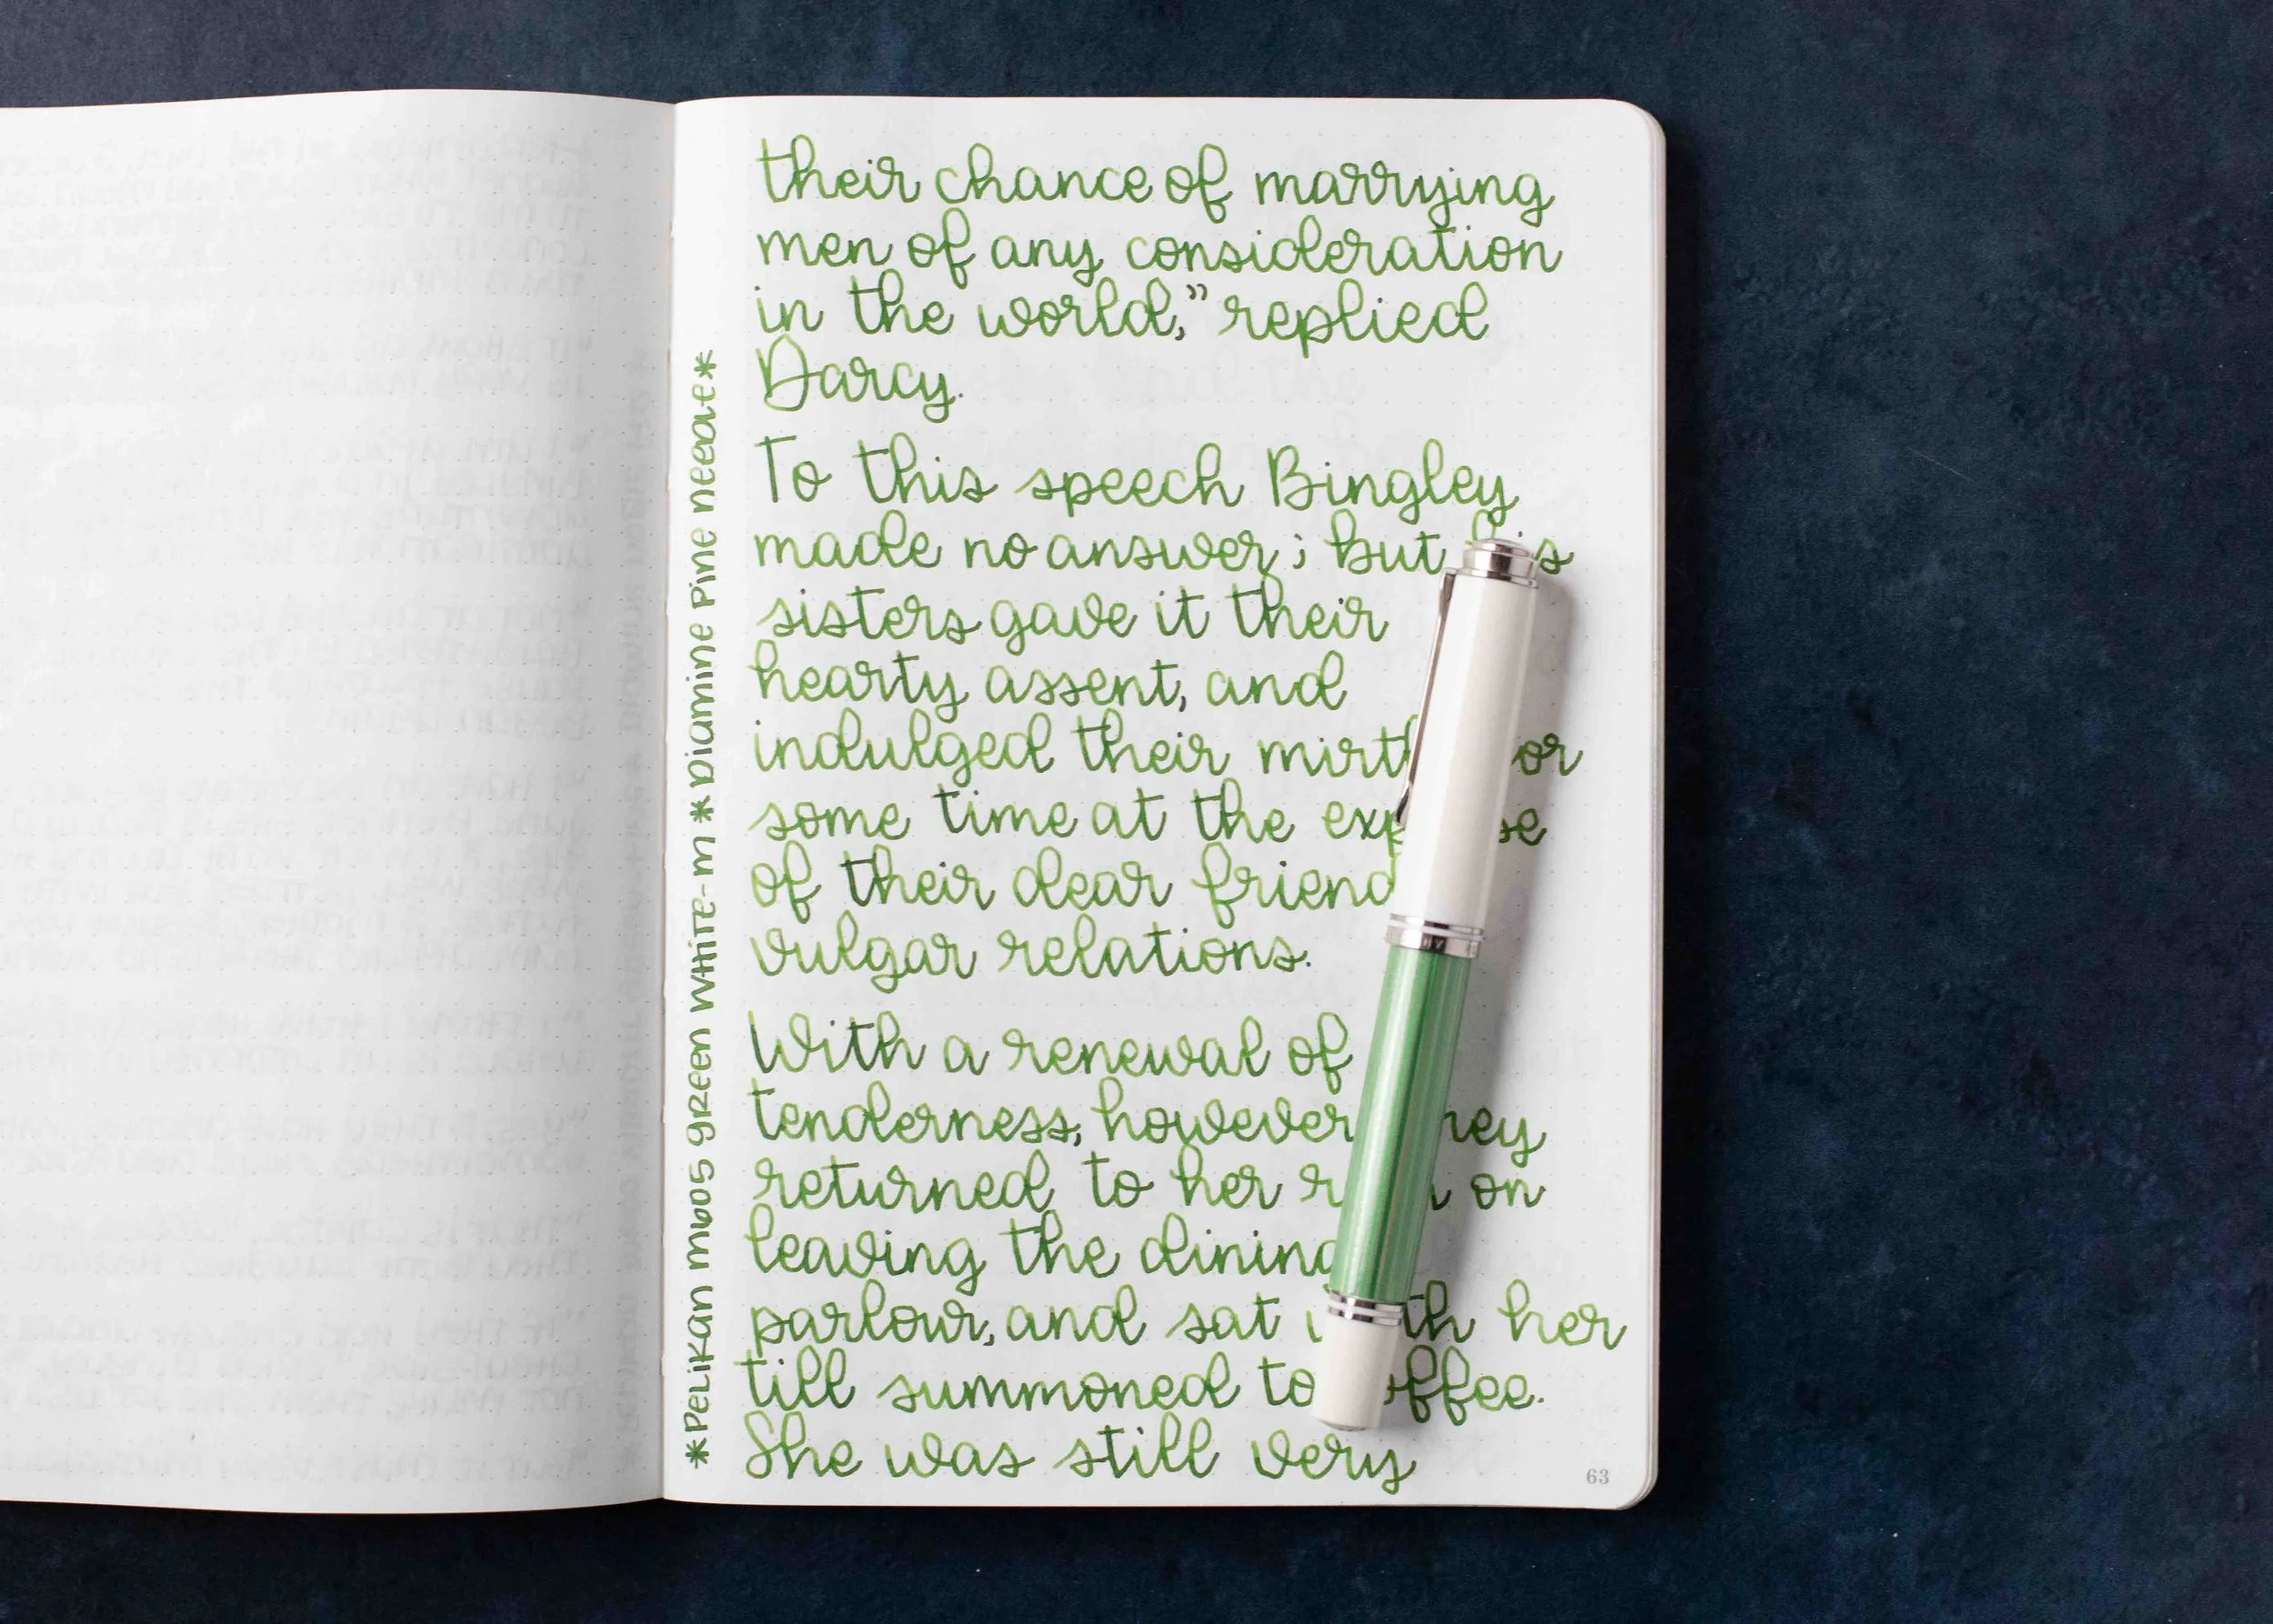 their chance of marrying
men of any consideration
in the world," replied
Darcy.
To this speech Bingley
made no answer; but his
sisters gave it their
hearty assent, and
indulged their mirth for
some time at the expense
of their dear friend
vulgar relations.
With a renewal of
tenderness, however they
returned to her on
leaving the dining
parlour, and sat with her
till summoned to coffee.
She was still very
63
*Pelikan M605 Green White-M *Diamine Pine Needle*